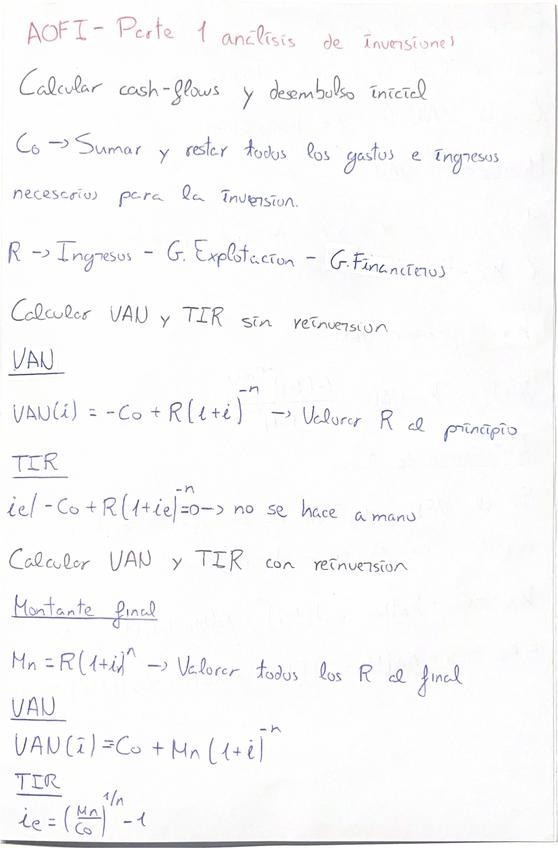 AOFI - Parte 1 análisis de inversiones
Calcular cash-flows y desembolso inicial
Co → Sumar y restar todos los gastos e ingresos
necesarios para la inversion.
R → Ingresos - G. Explotacion - G. Financieros
Calcular VAN y TIR sin reinversion
VAN
VAN(i) = -Co + R(1+i)^-n → Valorar R al principio
TIR
ie/ -Co + R(1+ie)^-n=0 → no se hace a mano
Calcular VAN y TIR con reinversion
Montante final
Mn = R(1+i)^n → Valorar todos los R al final
VAN
VAN(i) = Co + Mn (1+i)^-n
TIR
ie = (Mn/Co)^1/n - 1